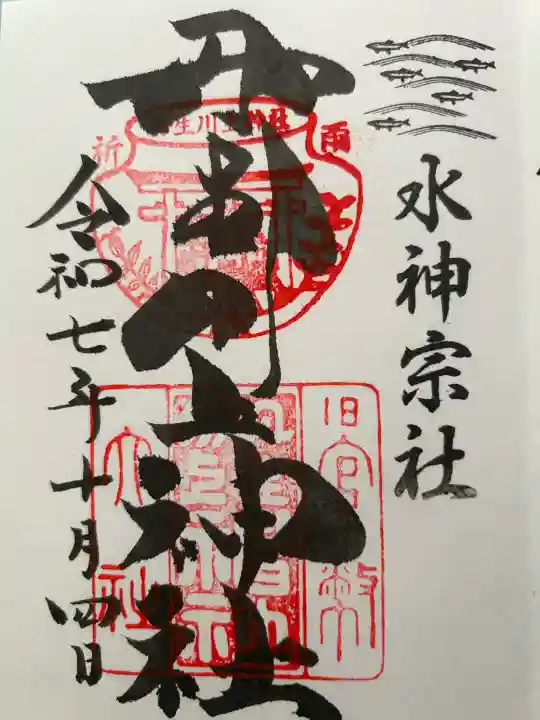 水神宗社
丹生川上神社
生川上神社
祈
雨
旧官幣
大社
令和七年十月四日